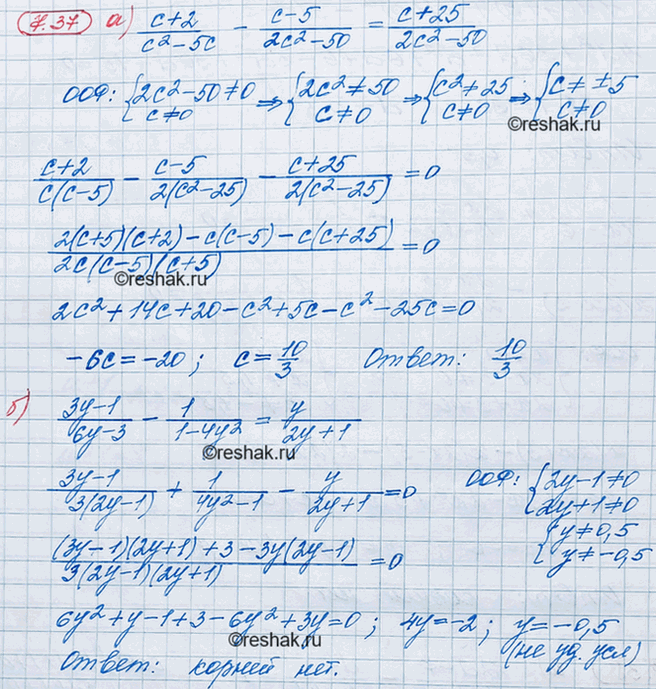 7.37 а) (c+2)/(c²-5c) - (c-5)/(2c²-50) = (c+25)/(2c²-50)
ООФ: {2c²-50≠0 c≠0 ⇒ {2c²≠50 c≠0 ⇒ {c²≠25 c≠0 ⇒ {c≠±5 c≠0
©reshak.ru
(c+2)/(c(c-5)) - (c-5)/(2(c²-25)) - (c+25)/(2(c²-25)) = 0
(2(c+5)(c+2)-c(c-5)-c(c+25))/(2c(c-5)(c+5)) = 0
©reshak.ru
2c²+14c+20-c²+5c-c²-25c=0
-6c=-20; c=10/3 Ответ: 10/3
б) (3y-1)/(6y-3) - 1/(1-4y²) = y/(2y+1)
©reshak.ru
(3y-1)/(3(2y-1)) + 1/(4y²-1) - y/(2y+1) = 0 ООФ: {2y-1≠0 2y+1≠0
{y≠0,5 y≠-0,5
((3y-1)(2y+1)+3-3y(2y-1))/(3(2y-1)(2y+1)) = 0
6y²+y-1+3-6y²+3y=0; 4y=-2; y=-0,5
©reshak.ru
(не уд. усл)
Ответ: корней нет.